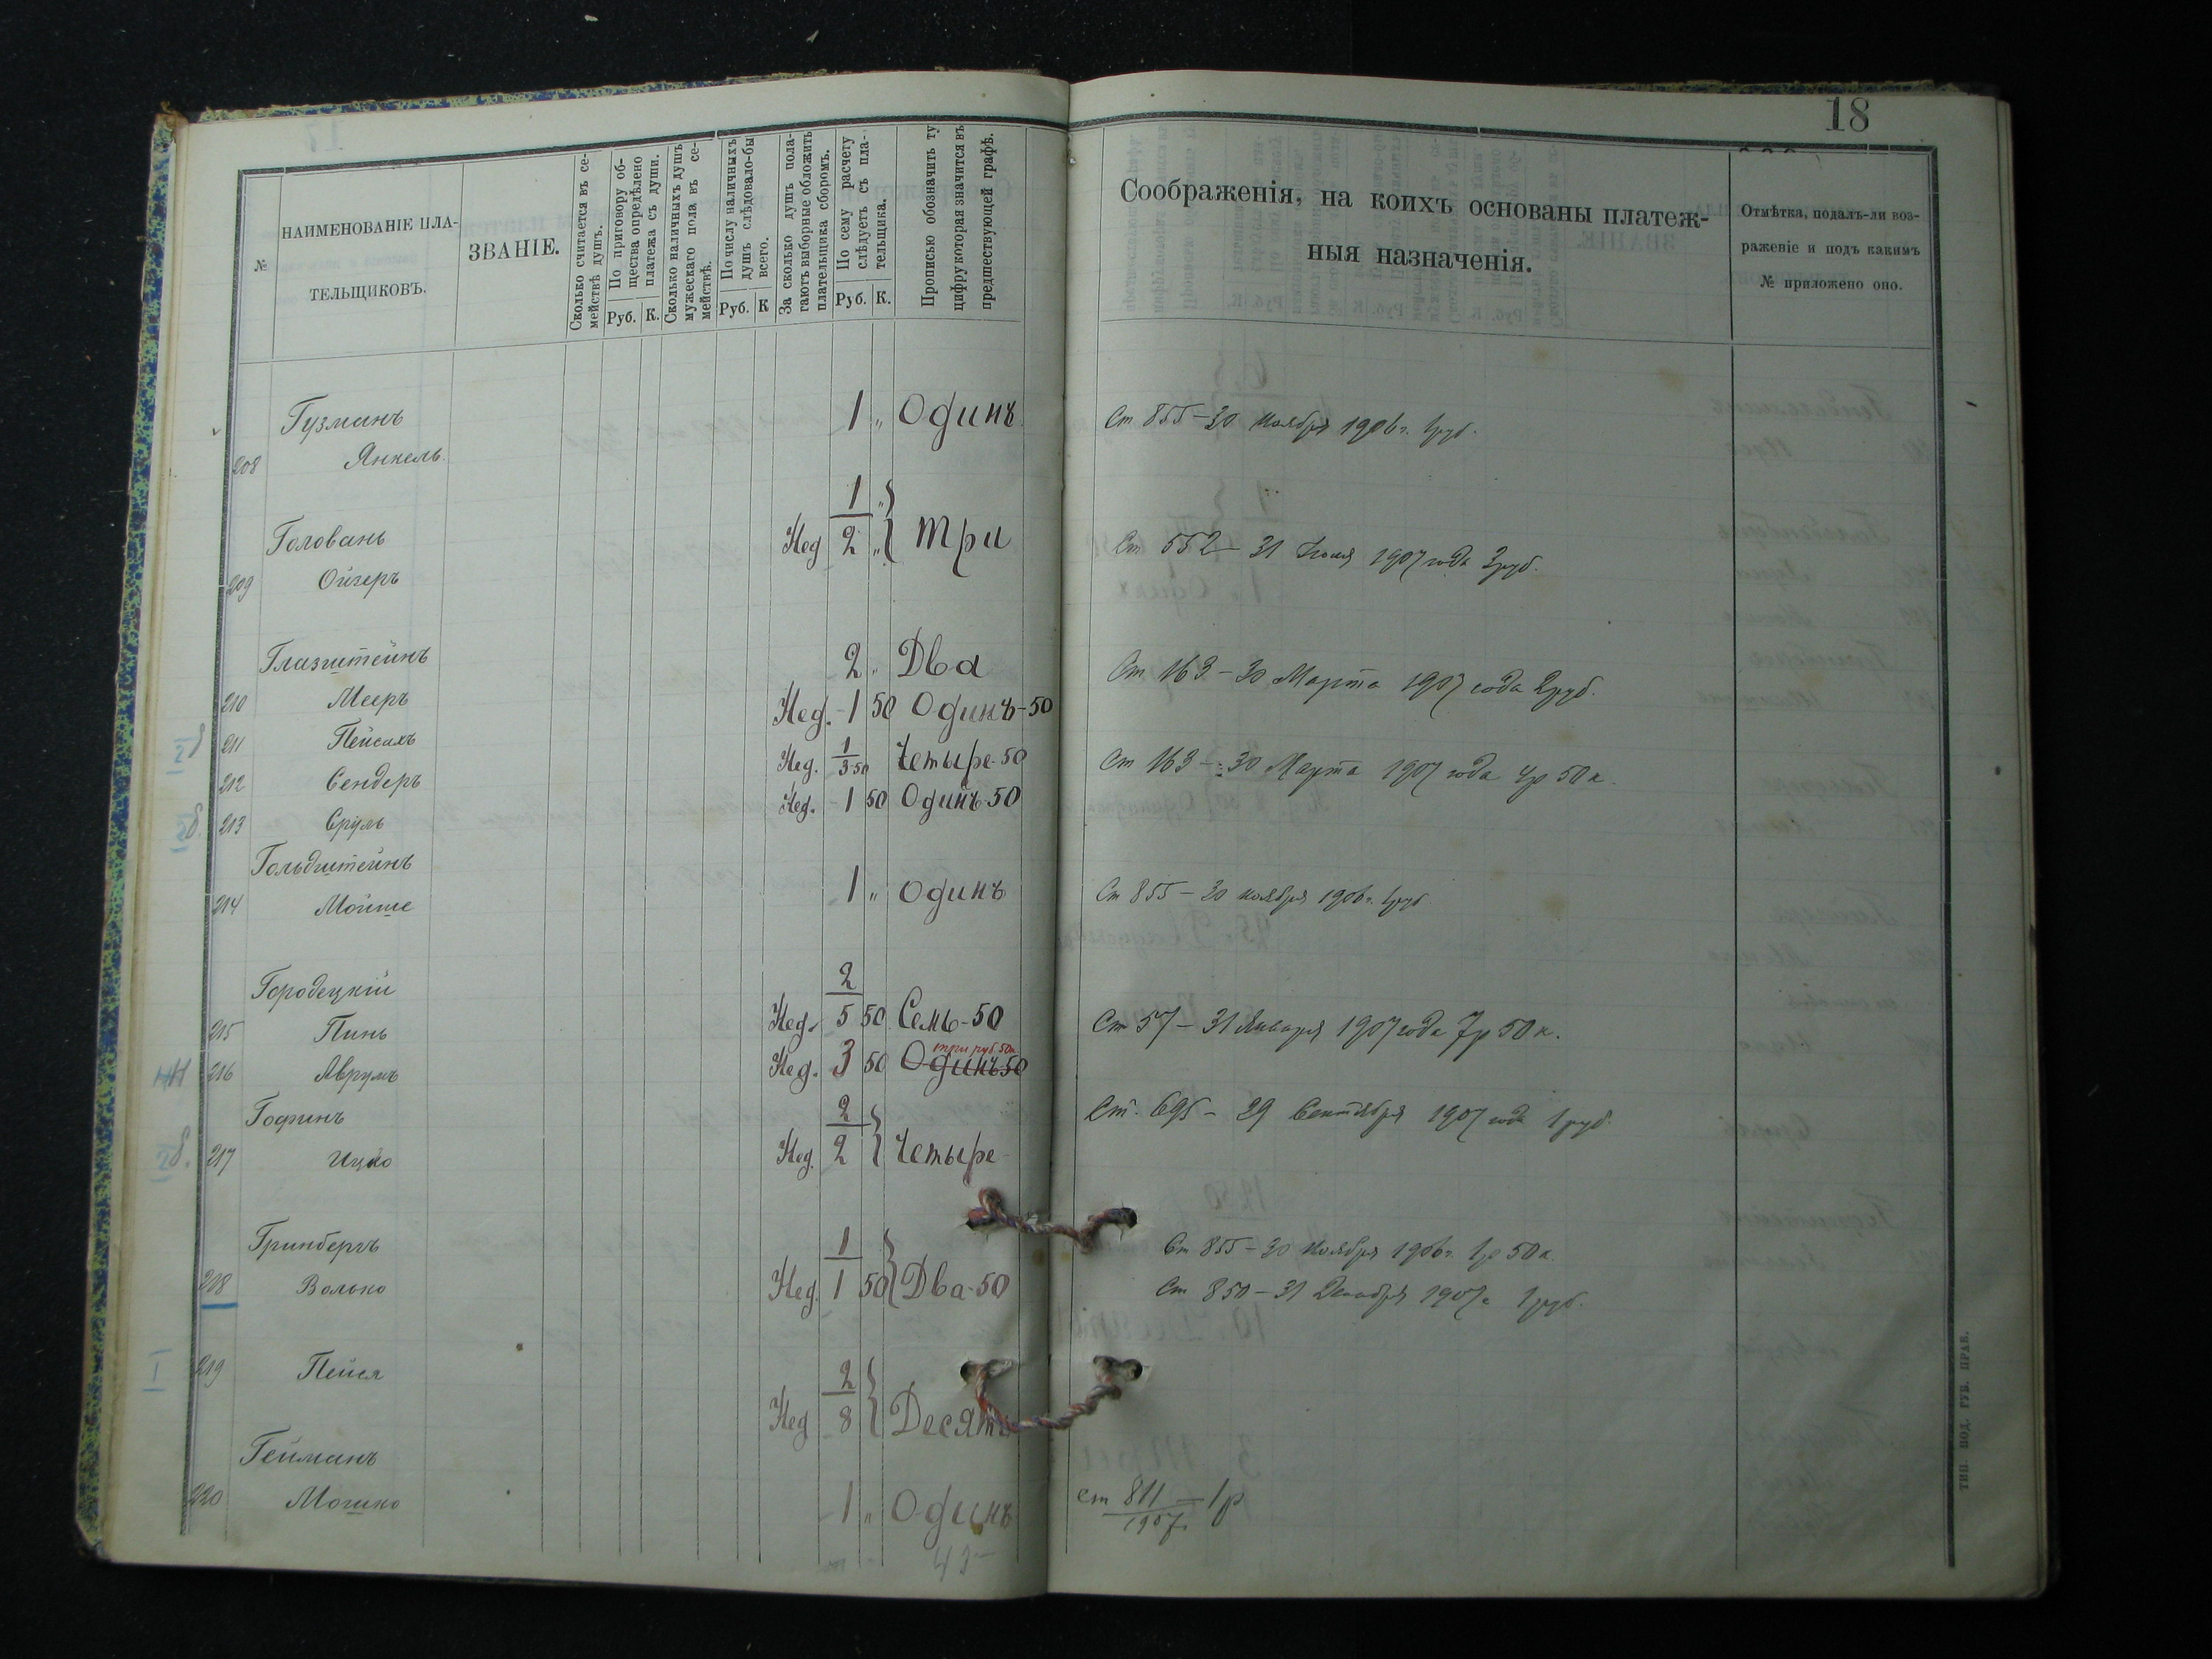 18
№
НАИМЕНОВАНІЕ ПЛА-
ТЕЛЬЩИКОВЪ.
ЗВАНІЕ.
Сколько считается въ се-
мействѣ душъ.
По приговору об-
щества опредѣлено
платежа съ души.
Руб. К.
Сколько наличныхъ душъ
мужескаго пола въ се-
мействѣ.
По числу наличныхъ
душъ слѣдовало-бы
всего.
Руб. К
За сколько душъ пола-
гаютъ выборные обложить
плательщика сборомъ.
По сему расчету
слѣдуетъ съ пла-
тельщика.
Руб. К.
Прописью обозначить ту
цифру которая значится въ
предшествующей графѣ.
Соображенія, на коихъ основаны платеж-
ныя назначенія.
Отмѣтка, подалъ-ли воз-
раженіе и подъ какимъ
№ приложено оно.
Гузманъ 1 „ Одинъ Ст 855 – 30 ноября 1906 г. 1 руб.
208 Янкель
1 „
Голованъ Нед 2 „ Три Ст 552 – 31 1907 года 3 руб.
209 Ойзеръ
Глазштейнъ 2 „ Два Ст 163 – 30 Марта 1907 года 2 руб.
210 Мееръ Нед. 1 50 Одинъ-50
211 Пейсахъ Нед. 1 3 50 Четыре-50 Ст 163 – 30 Марта 1907 года 4 р 50 к.
212 Сендеръ Нед. 1 50 Одинъ-50
213 Сруль
Гольдштейнъ 1 „ Одинъ Ст 855 – 30 ноября 1906 г. 1 руб
214 Мойше
2
Городецкій Нед. 5 50 Семь-50 Ст 57 – 31 Января 1907 года 7 р 50 к.
215 Пинь
три руб. 50 к.
216 Аврумъ Нед. 3 50 Одинъ 50
2
Гофинъ Ст. 695 – 29 Сентября 1907 года 1 руб.
217 Ицко Нед. 2 Четыре
Гринбергъ 1 Ст 855 – 30 ноября 1906 г. 1 р 50 к.
218 Волько Нед. 1 50 Два-50 Ст 850 – 31 Декабря 1907 г 1 руб.
I 219 Пейся 2
Нед 8 Десять
Гейманъ
220 Мошко 1 „ Одинъ ст 811 – 1 р
1907 г.
ТИП. ПОД. ГУБ. ПРАВ.